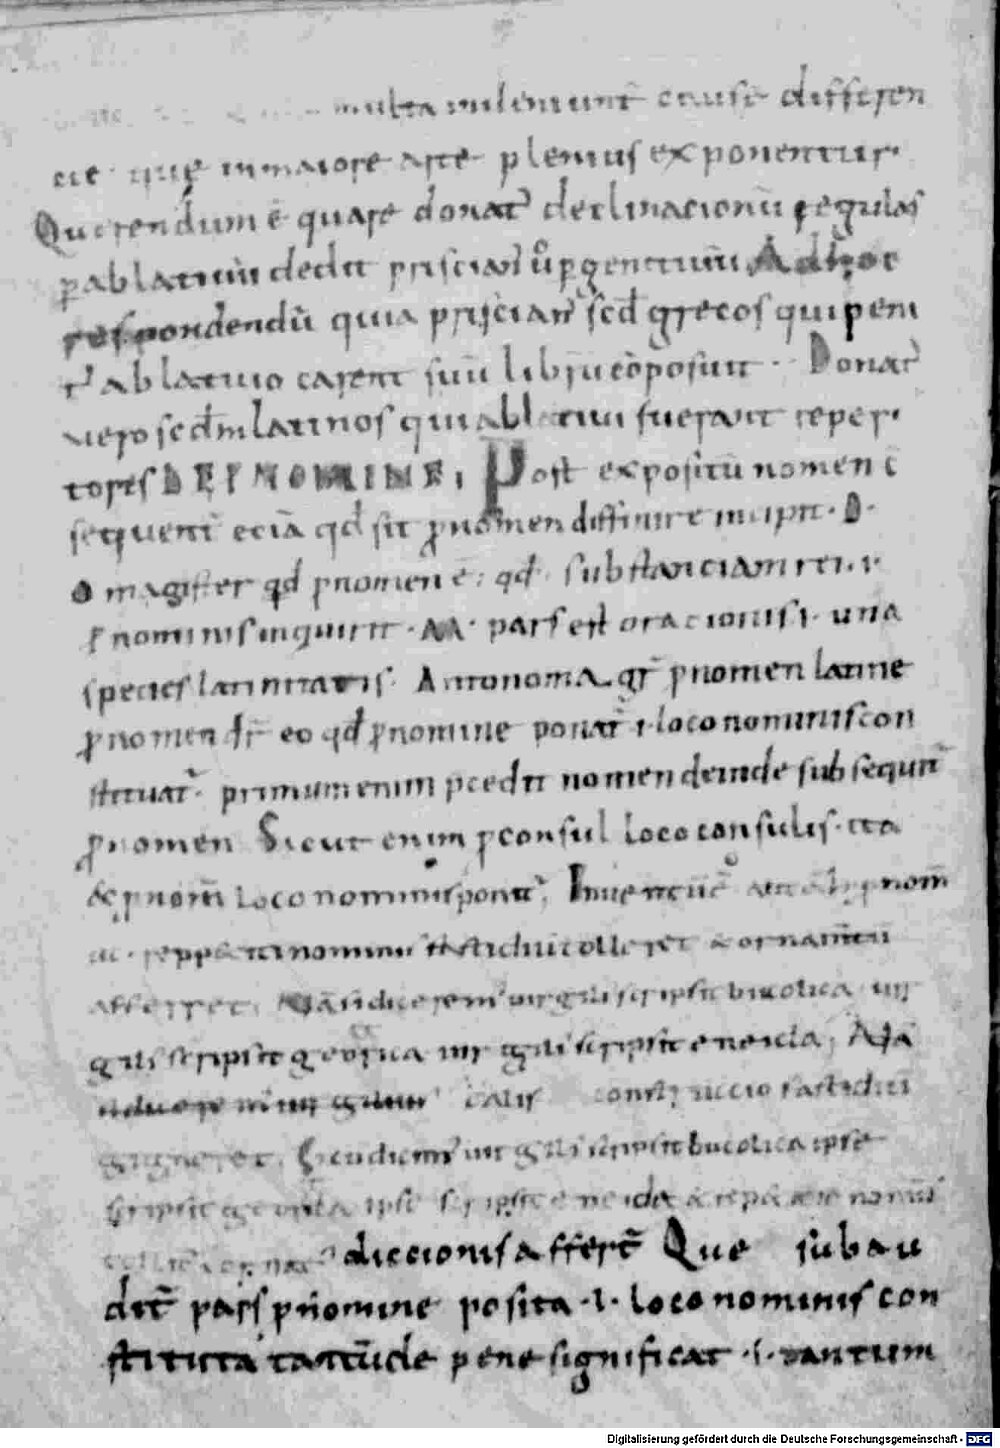 multa inveniunt̄ cause differen
cie que in maiore arte plenius exponentur.
Querendum ē quare donat᷒ declinacionū regulas
ꝑ ablatiuū dedit priscian᷒ ꝑ genitiuū Ad hoc
respondendū quia priscian᷒ scd grecos qui penit᷒
ablatiuo carent suū librū cōposuit. Donat᷒
vero scdm latinos qui ablatiui fuerant reper
tores DE PNOMINE. Post expositū nomen c̄
sequent̄ eciā qd sit ꝓnomen diffinire incipit. D.
o magister qd pnomen ē; qd. substanciam rei .i.
ꝓnominis inquirit. M. pars est oracionis .i. una
species latinitatis. Antonoma. gr̄ pnomen latine
ꝓnomen dr̄ eo qd ꝓnomine ponat᷒ .i. loco nominis con
stituat᷒. primum enim pcedit nomen deinde subsequit᷒
ꝓnomen Sicut enim ꝓconsul loco consulis. ita
& ꝓnom̄ loco nominis ponit᷒. Inuentū ē pnom̄
nominis fastidiū tolleret & ornam̄tū
afferret. si dicerem᷒ uirgili᷒ scripsit bucolica uir
gili᷒ scripsit georica uirgili᷒ scripsit eneida,
talis constructio fastidiū
gigneret. Si cū dicim᷒ uirgili᷒ scripsit bucolica ipse
scripsit georica ipse scripsit eneida
diccionis affert̄ Que subau
dit̄ pars pnomine posita .i. loco nominis con
stituta tantūde pene significat .i. tantum
Digitalisierung gefördert durch die Deutsche Forschungsgemeinschaft - DFG